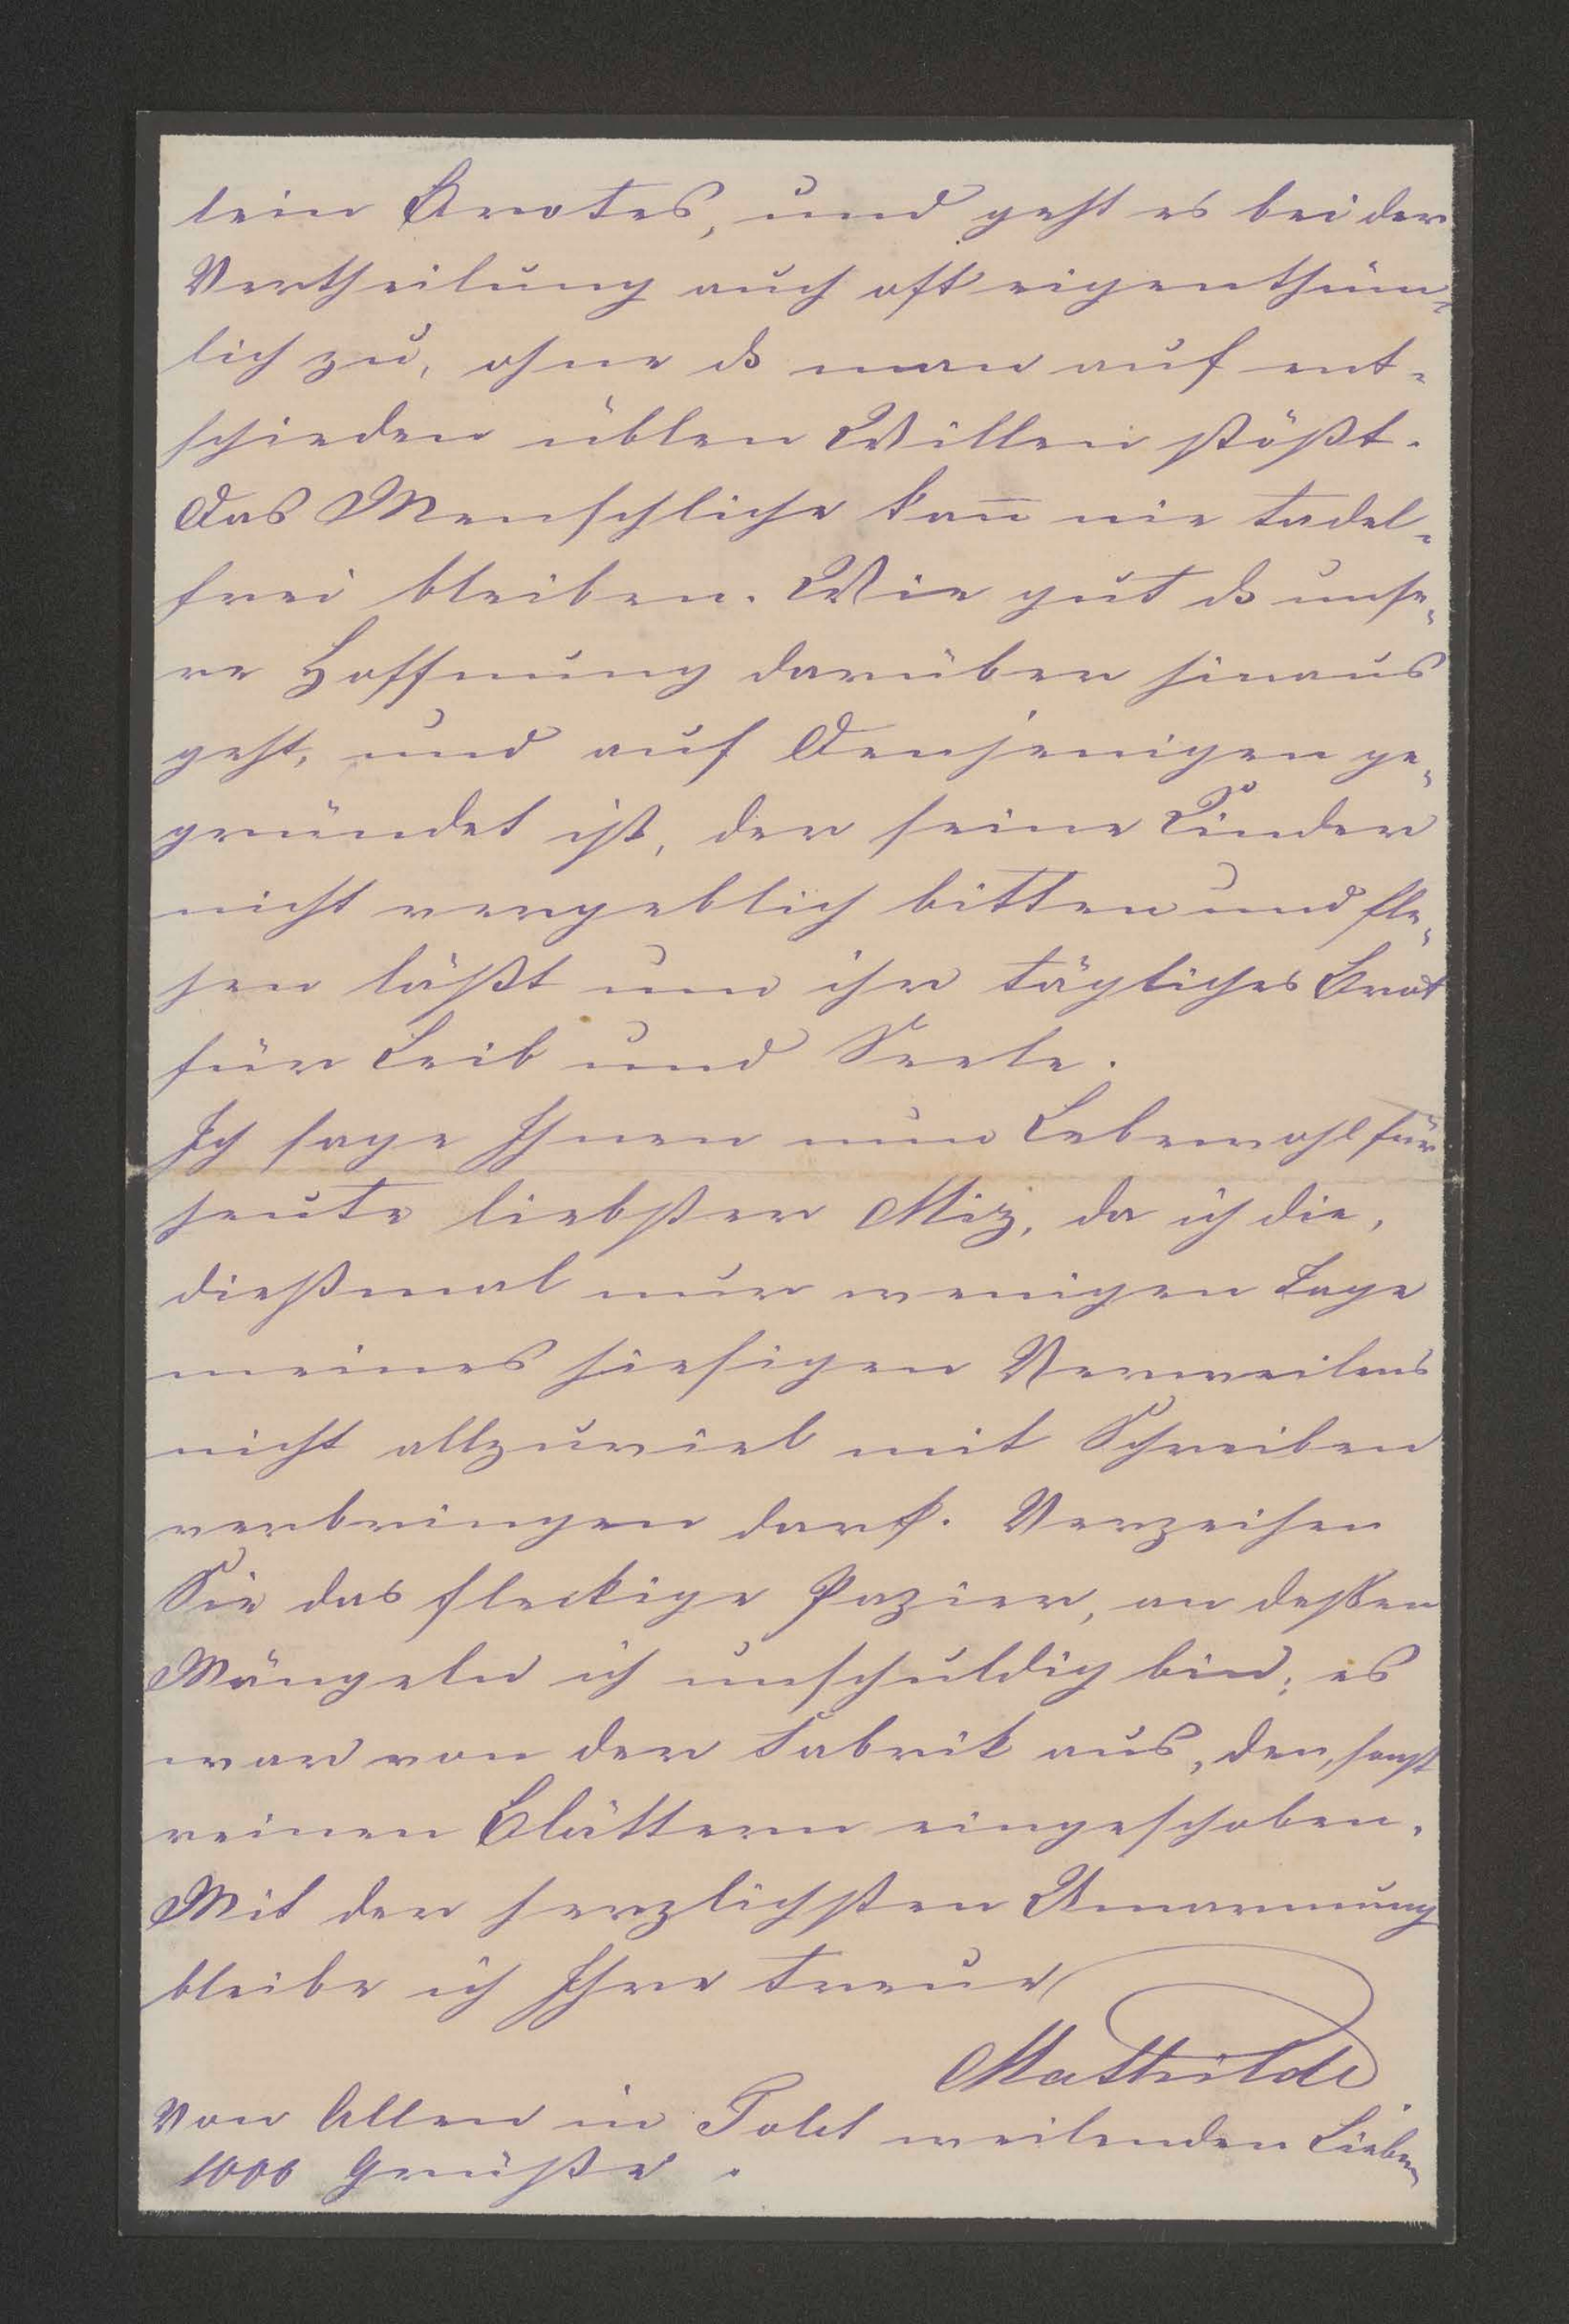 lein Brotes, und geht es bei der
Vertheilung auch oft eigenthüm-
lich zu, ohne dß man auf ent-
schieden üblen Willen stößt.
Das Menschliche kan̄ nie tadel-
frei bleiben. Wie gut dß unse-
re Hoffnung darüber hinaus
geht, und auf Denjenigen ge-
gründet ist, der seine Kinder
nicht vergeblich bitten und fle-
hen läßt um ihr tägliches Brot
für Leib und Seele.
Ich sage Ihnen nun Lebewohl für
heute liebster Miz, da ich die,
dießmal nur wenigen Tage
meines hiesigen Verweilens
nicht allzuviel mit Schreiben
verbringen darf. Verzeihen
Sie das fleckige Papier, an deßen
Mängeln ich unschuldig bin; es
war von der Fabrik aus, den, sonst
reinen Blättern eingeschoben.
Mit der herzlichsten Umarmung
bleibe ich Ihre treue
Mathilde
Von Allen in weilenden Lieben
1000 Grüße.